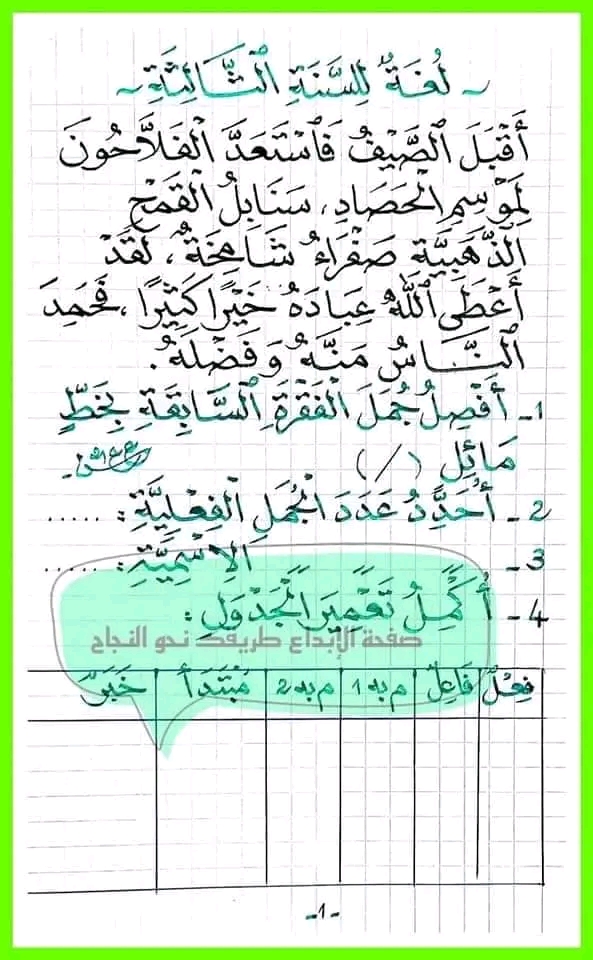 ~ لُغَةٌ لِلسَّنَةِ الثَّالِثَةِ ~
أَقْبَلَ الصَّيْفُ فَاسْتَعَدَّ الْفَلَّاحُونَ
لِمَوْسِمِ الْحَصَادِ، سَنَابِلُ الْقَمْحِ
الذَّهَبِيَّةِ صَفْرَاءُ شَامِخَةٌ، لَقَدْ
أَعْطَى اللَّهُ عِبَادَهُ خَيْرًا كَثِيرًا، فَحَمِدَ
النَّاسُ مَنَّهُ وَفَضْلَهُ.
1 - أَفْصِلُ جُمَلَ الْفَقْرَةِ السَّابِقَةِ بِخَطٍّ
مَائِلٍ (/)
2 - أُحَدِّدُ عَدَدَ الْجُمَلِ الْفِعْلِيَّةِ: .....
3 - الِاسْمِيَّةِ: ......
4 - أُكْمِلُ تَعْمِيرَ الْجَدْوَلِ:
صفحة الإبداع طريقك نحو النجاح
فِعْلٌ فَاعِلٌ م به 1 م به 2 مُبْتَدَأ خَبَرٌ
-1-